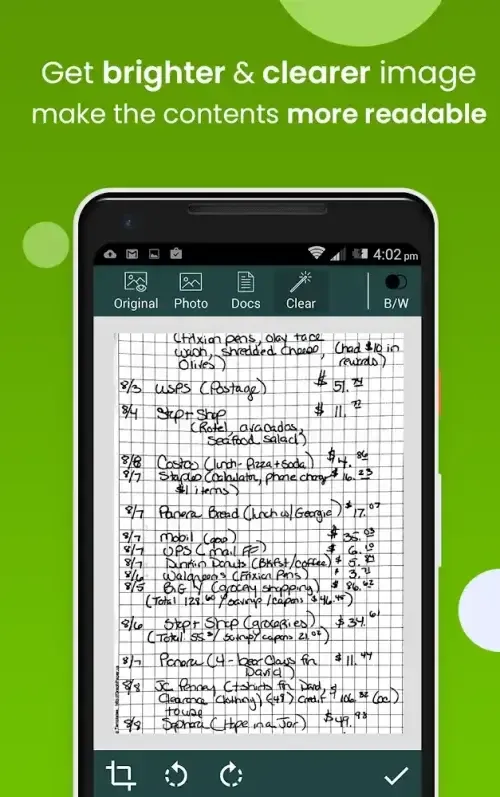 Get brighter & clearer image
make the contents more readable
4:02 pm
Original Photo Docs Clear B/W
(Frixion pens, olay face
wash, shredded cheese, (had $10 in
Olives) rewards)
8/3 USPS (Postage) $ 51.
8/4 Stop + Shop $ 11.
(Rotel, avacados,
seafood salad)
8/8 Costco (lunch-Pizza + Soda) $ 4. 86
8/7 Staples (Calculator, phone charger $ 16. 23
$1 items)
8/7 Panera Bread (lunch w/ Georgie) $ 17. 07
8/7 Mobil (gas) $ 35. 03
8/7 UPS (mail FF) $ 6. 10
8/7 Dunkin Donuts (Bkfst/coffee) $ 5.
8/6 Walgreens (Frixion Pens) $ 3.
8/5 BIG Y (grocery shopping) $ 86. 62
(Total 128. / savings/coupons $46.)
8/6 Stop + Shop (groceries) $ 34. 61
(Total 55. / savings/coupons 21.)
8/7 Panera (4- bear claws for $ 11. 44
David)
8/8 JC Penney (tshirts for David, &
Clearance Clothing) (48) credit $ 106. (cc)
8/8 Sephora (Hope in a Jar) $ 49. 93